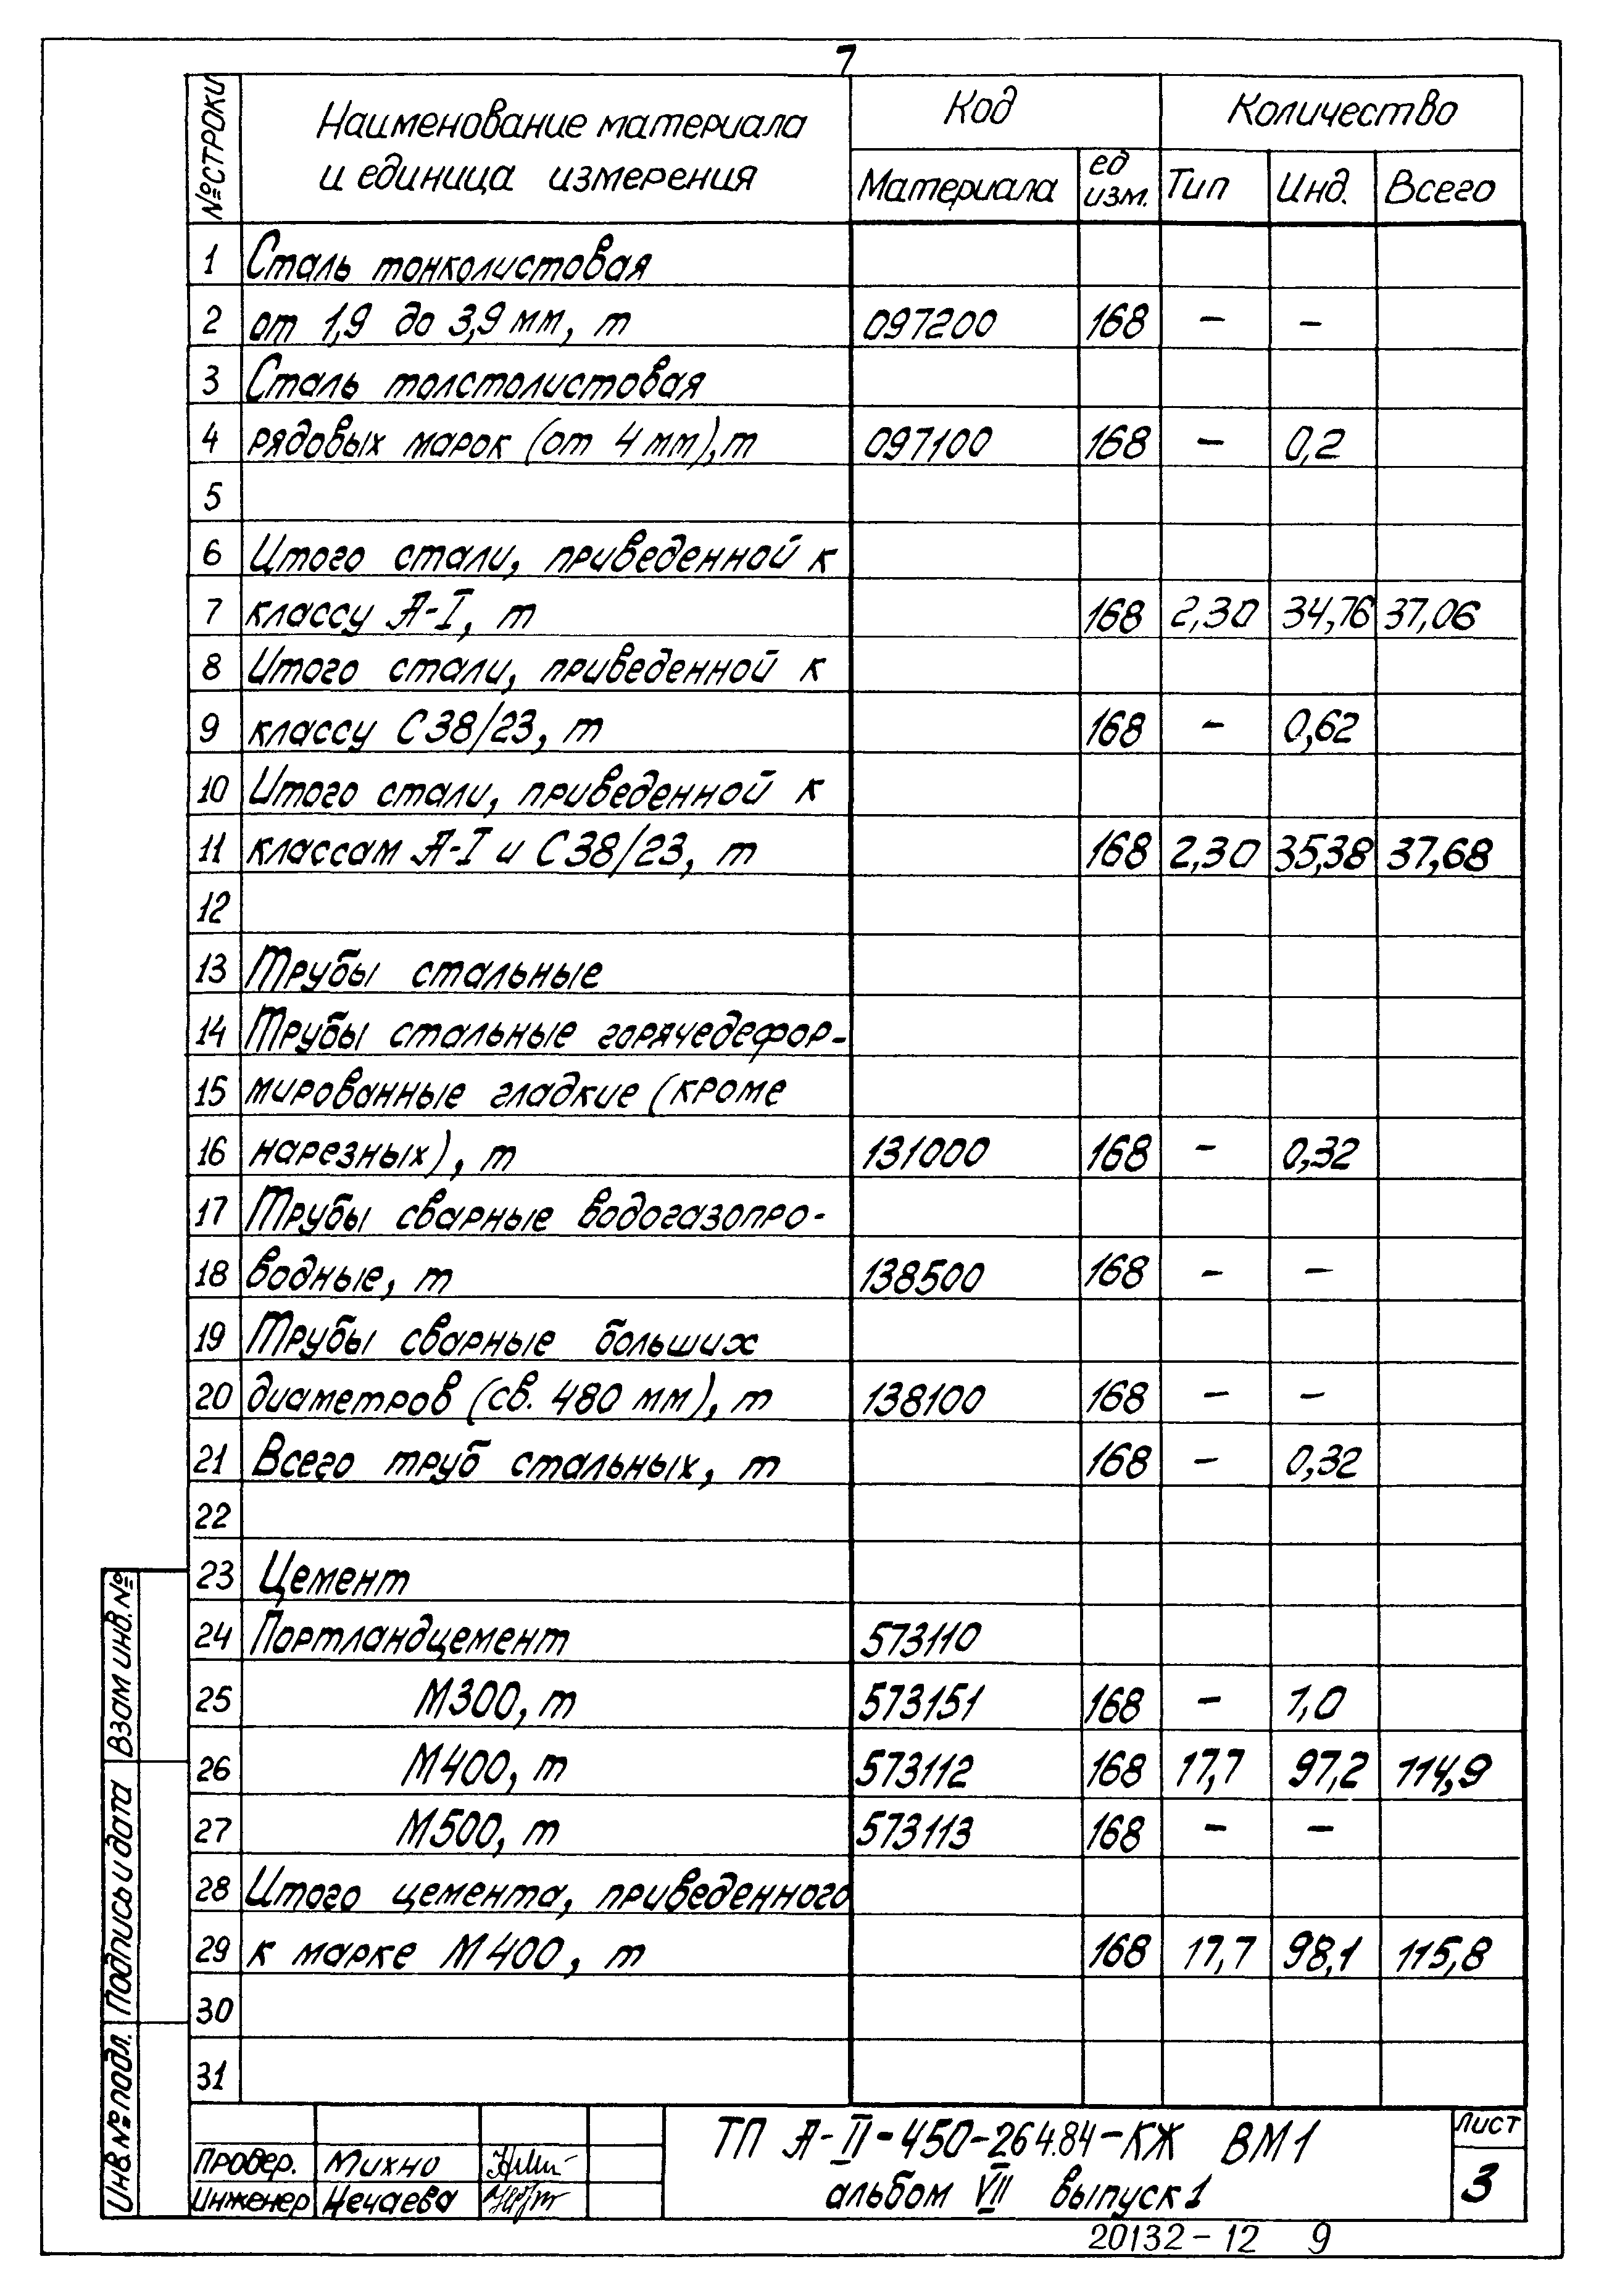 7
№ СТРОКИ Наименование материала и единица измерения Код Количество
Материала ед изм. Тип Инд. Всего
1 Сталь тонколистовая
2 от 1,9 до 3,9 мм, т 097200 168 – –
3 Сталь толстолистовая
4 рядовых марок (от 4 мм), т 097100 168 – 0,2
5
6 Итого стали, приведенной к
7 классу А-I, т 168 2,30 34,76 37,06
8 Итого стали, приведенной к
9 классу С38/23, т 168 – 0,62
10 Итого стали, приведенной к
11 классам А-I и С38/23, т 168 2,30 35,38 37,68
12
13 Трубы стальные
14 Трубы стальные горячедефор-
15 мированные гладкие (кроме
16 нарезных), т 131000 168 – 0,32
17 Трубы сварные водогазопро-
18 водные, т 138500 168 – –
19 Трубы сварные больших
20 диаметров (св. 480 мм), т 138100 168 – –
21 Всего труб стальных, т 168 – 0,32
22
23 Цемент
24 Портландцемент 573110
25 М300, т 573151 168 – 1,0
26 М400, т 573112 168 17,7 97,2 114,9
27 М500, т 573113 168 – –
28 Итого цемента, приведенного
29 к марке М400, т 168 17,7 98,1 115,8
30
31
Взам инв. №
Подпись и дата
Инв № подл.
Провер. Михно
Инженер Нечаева
ТП А-II-450-264.84-КЖ ВМ1
альбом VII выпуск 1
Лист
3
20132-12 9